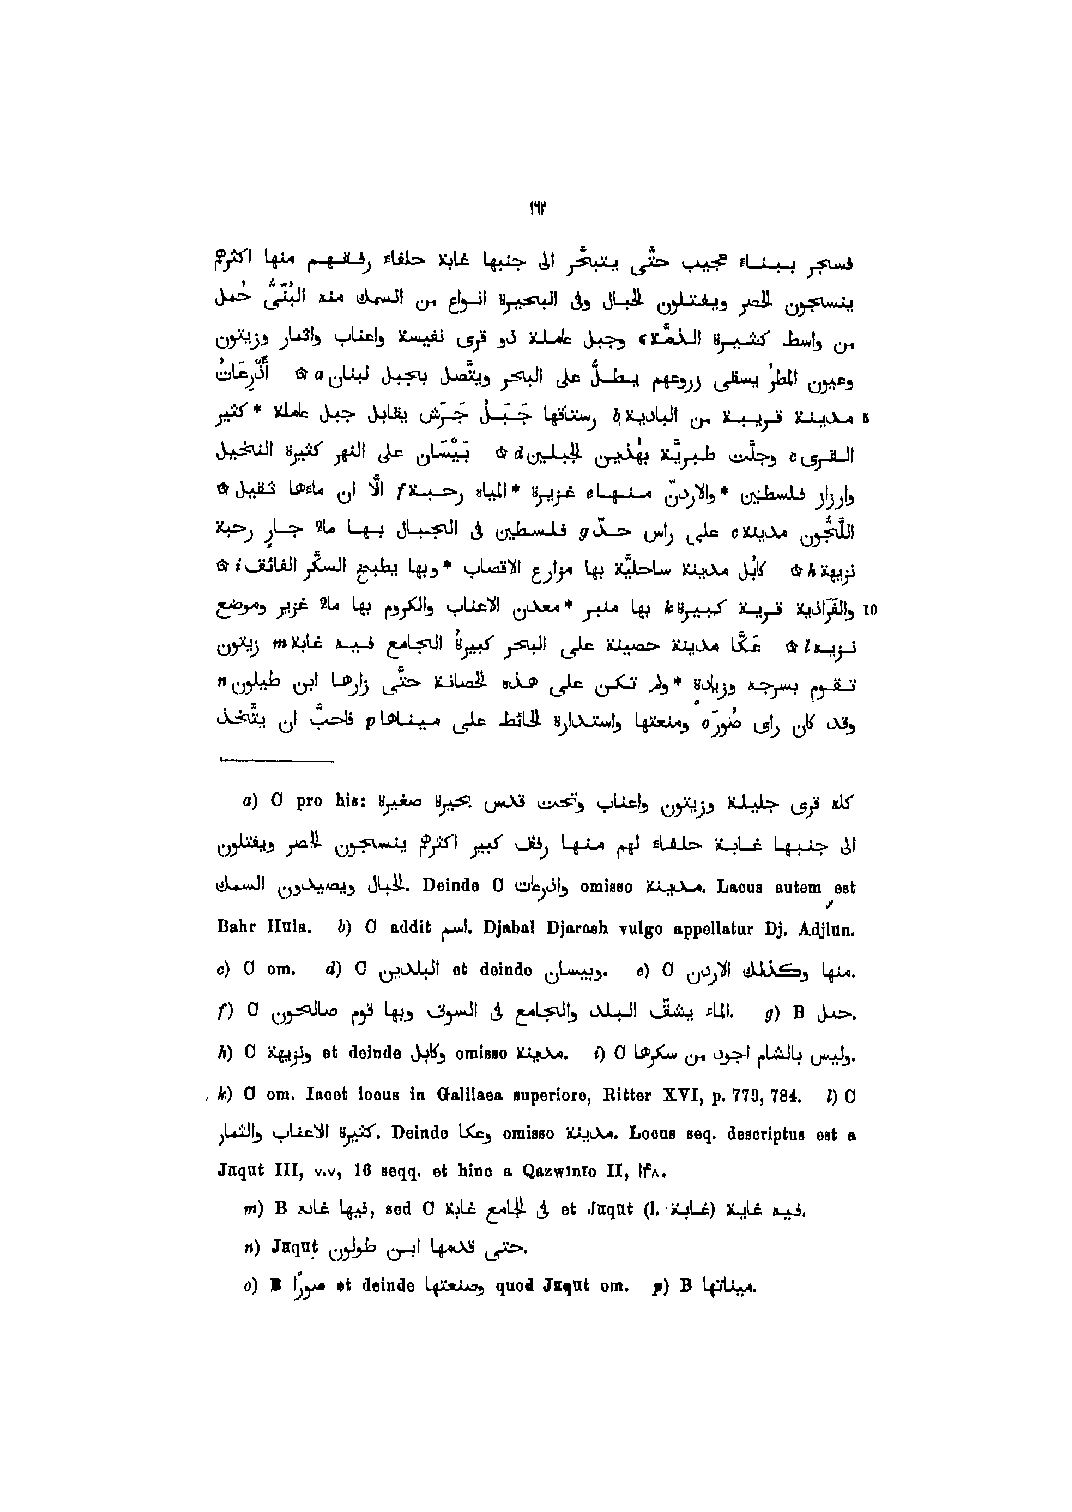 ١٦٢
فسجر ببناء عجيب حتّى يتبحّر الى جنبها غابة حلفاء رفقهم منها اكثرهم
ينسجون الحصر ويفتلون الحبال وفى البحيرة انواع من السمك منه البُنّىُّ حُمل
من واسط كثيرة الذمّة c وجبل عاملة ذو قرى نفيسة واعناب واثمار وزيتون
وعيون المطر يسقى زروعهم يطلّ على البحر ويتّصل بجبل لبنان a ۞ أَذْرِعَاتُ
5 مدينة قريبة من البادية b رستاقها جَبَلُ جَرَش يقابل جبل عاملة * كثير
القرى c وجلّت طبريّة بهذين الجبلين d ۞ بَيْسَان على النهر كثيرة النخيل
وارزاز فلسطين * والاردنّ منها e غزيرة * المياه رحبة f الّا ان ماءها ثقيل ۞
اللَّجُّون مدينة c على راس حدّ g فلسطين فى الجبال بها ماءٌ جارٍ رحبة
نزيهة h ۞ كابُل مدينة ساحليّة بها مزارع الاقصاب * وبها يطبخ السكّر الفائق i ۞
10 والفَرَاذية قرية كبيرة k بها منبر * معدن الاعناب والكروم بها ماءٌ غزير وموضع
نزيه l ۞ عَكّا مدينة حصينة على البحر كبيرةُ الجامع فيه غابة m زيتون
تقوم بسرجه وزيادةٍ * ولم تكن على هذه الحصانة حتّى زارها ابن طيلون n
وقد كان راى صُورَ o ومنعتها واستدارة الحائط على ميناها p فاحبَّ ان يتّخذ
a) C pro his: كله قرى جليلة وزيتون واعناب وتحت قدس بحيرة صغيرة
الى جنبها غابة حلفاء لهم منها رفق كبير اكثرهم ينسجون الحصر ويفتلون
الحبال ويصيدون السمك. Deinde C واذرعات omisso مدينة. Lacus autem est
Bahr Hula. b) C addit اسم. Djabal Djarash vulgo appellatur Dj. Adjlun.
c) C om. d) C البلدين et deinde وبيسان. e) C منها وكذلك الاردن.
f) C الماء يشقّ البلد والجامع فى السوق وبها قوم صالحون. g) B جبل.
h) C ونزيهة et deinde وكابل omisso مدينة. i) C وليس بالشام اجود من سكرها.
k) C om. Iacet locus in Galilaea superiore, Ritter XVI, p. 779, 784. l) C
كثيرة الاعناب والثمار. Deinde وعكا omisso مدينة. Locus seq. descriptus est a
Jaqut III, ٧.٧, 16 seqq. et hinc a Qazwînîo II, ١۴٨.
m) B فيها غابه, sed C فى الجامع غابة et Jaqut (l. غابة) فيه غاية.
n) Jaqut حتى قدمها ابن طولون.
o) B صورًا et deinde وصنعتها quod Jaqut om. p) B مينائها.